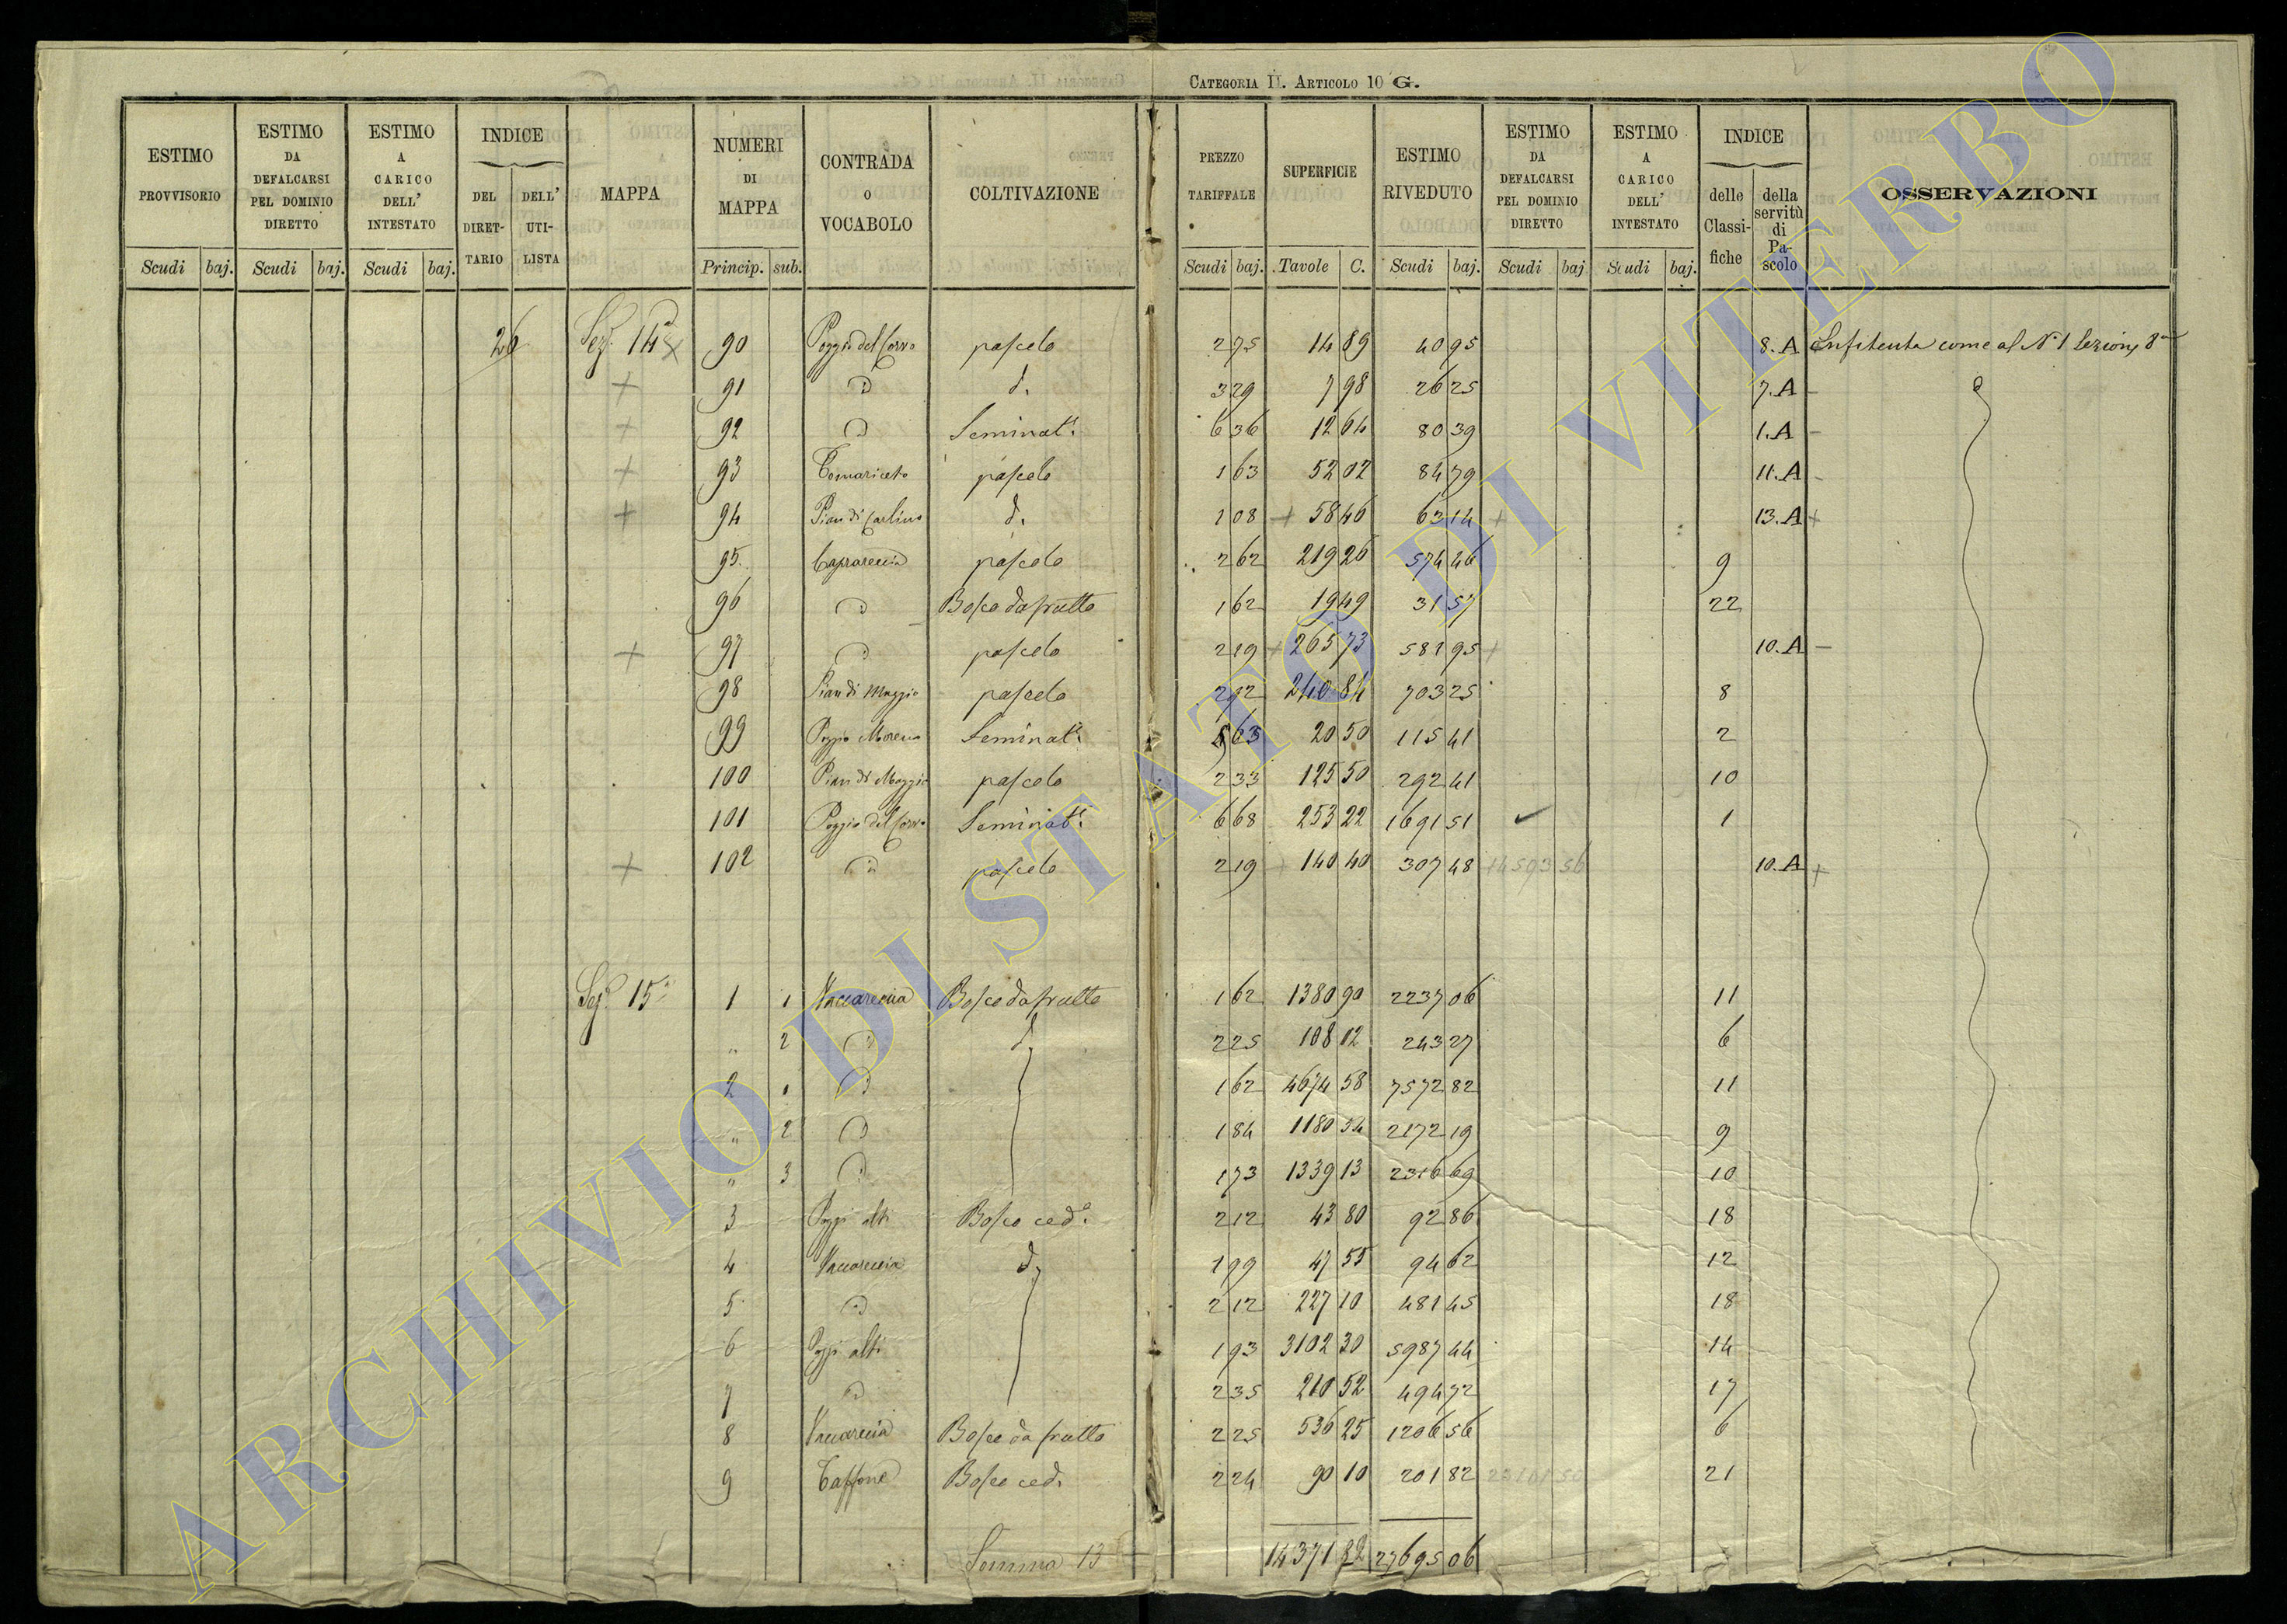 CATEGORIA II. ARTICOLO 10 G.
ESTIMO PROVVISORIO | ESTIMO DA DEFALCARSI PEL DOMINIO DIRETTO | ESTIMO A CARICO DELL' INTESTATO | INDICE DEL DIRETTARIO | DELL' UTILISTA | MAPPA | NUMERI DI MAPPA | CONTRADA O VOCABOLO | COLTIVAZIONE | PREZZO TARIFFALE | SUPERFICIE | ESTIMO RIVEDUTO | ESTIMO DA DEFALCARSI PEL DOMINIO DIRETTO | ESTIMO A CARICO DELL' INTESTATO | INDICE delle Classifiche | della servitù di Pascolo | OSSERVAZIONI
Scudi baj. | Scudi baj. | Scudi baj. | Princip. sub. | Scudi baj. | Tavole C. | Scudi baj. | Scudi baj | Scudi baj.
26 Sez. 14ª 90 Poggio del Corvo pascolo 2 75 14 89 40 95 8.A Enfiteuta come al N. 1 Sezione 8ª
+ 91 d. 3 29 7 98 26 25 7.A
+ 92 Seminat.º 6 36 12 64 80 39 1.A
+ 93 pascolo 1 63 52 02 84 79 11.A
+ 94 Pian di Carlino d. 1 08 + 58 46 63 14 + 13.A +
95. Caprareccia pascolo 2 62 219 26 574 46 9
96 Bosco da frutto 1 62 19 49 31 57 22
+ 97 pascolo 2 19 + 265 73 581 95 + 10.A
98 Pian di Maggio pascolo 2 92 240 84 703 25 8
99 Poggio Moreno Seminat.º 5 63 20 50 115 41 2
100 Pian di Maggio pascolo 2 33 125 50 292 41 10
101 Poggio del Corvo Seminat.º 6 68 253 22 1691 51 1
+ 102 pascolo 2 19 + 140 40 307 48 +4593 56 10.A +
Sez. 15ª 1 1 Vaccareccia Bosco da frutto 1 62 1380 90 2237 06 11
" 2 d. 2 25 108 12 243 27 6
2 1 1 62 4674 58 7572 82 11
" 2 1 84 1180 54 2172 19 9
" 3 1 73 1339 13 2316 69 10
3 Poggi alti Bosco ced.º 2 12 43 80 92 86 18
4 Vaccareccia d. 1 99 47 55 94 62 12
5 2 12 227 10 481 45 18
6 Poggi alti 1 93 3102 30 5987 44 14
7 2 35 210 52 494 72 17
8 Vaccareccia Bosco da frutto 2 25 536 25 1206 56 6
9 Taffone Bosco ced. 2 24 90 10 201 82 21
Somma 13 14371 82 27695 06
ARCHIVIO DI STATO DI VITERBO